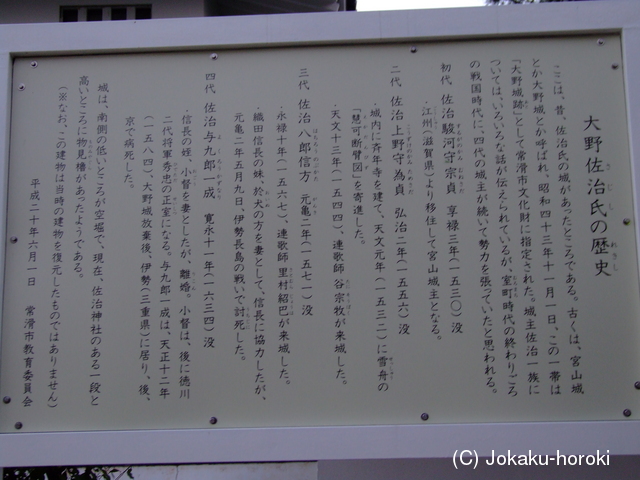 大野佐治氏の歴史
ここは、昔、佐治氏の城があったところである。古くは、宮山城
とか大野城とか呼ばれ、昭和四十三年十一月一日、この一帯は
「大野城跡」として常滑市文化財に指定された。城主佐治一族に
ついては、いろいろな話が伝えられているが、室町時代の終わりごろ
の戦国時代に、四代の城主が続いて勢力を張っていたと思われる。
初代 佐治駿河守宗貞 享禄三年(一五三〇)没
・江州(滋賀県)より移住して宮山城主となる。
二代 佐治上野守為貞 弘治二年(一五五六)没
・城内に斉年寺を建て、天文元年(一五三二)に雪舟の
「慧可断臂図」を寄進した。
・天文十三年(一五四四)、連歌師 谷宗牧が来城した。
三代 佐治八郎信方 元亀二年(一五七一)没
・永禄十年(一五六七)、連歌師 里村紹巴が来城した。
・織田信長の妹、於犬の方を妻として、信長に協力したが、
元亀二年五月九日、伊勢長島の戦いで討死した。
四代 佐治与九郎一成 寛永十一年(一六三四)没
・信長の姪、小督を妻としたが、離婚。小督は、後に徳川
二代将軍秀忠の正室になる。与九郎一成は、天正十二年
(一五八四)、大野城放棄後、伊勢(三重県)に居り、後、
京で病死した。
城は、南側の低いところが空堀で、現在、佐治神社のある一段と
高いところに物見櫓があったようである。
(※なお、この建物は当時の建物を復元したものではありません)
平成二十年六月一日 常滑市教育委員会
(C) Jokaku-horoki